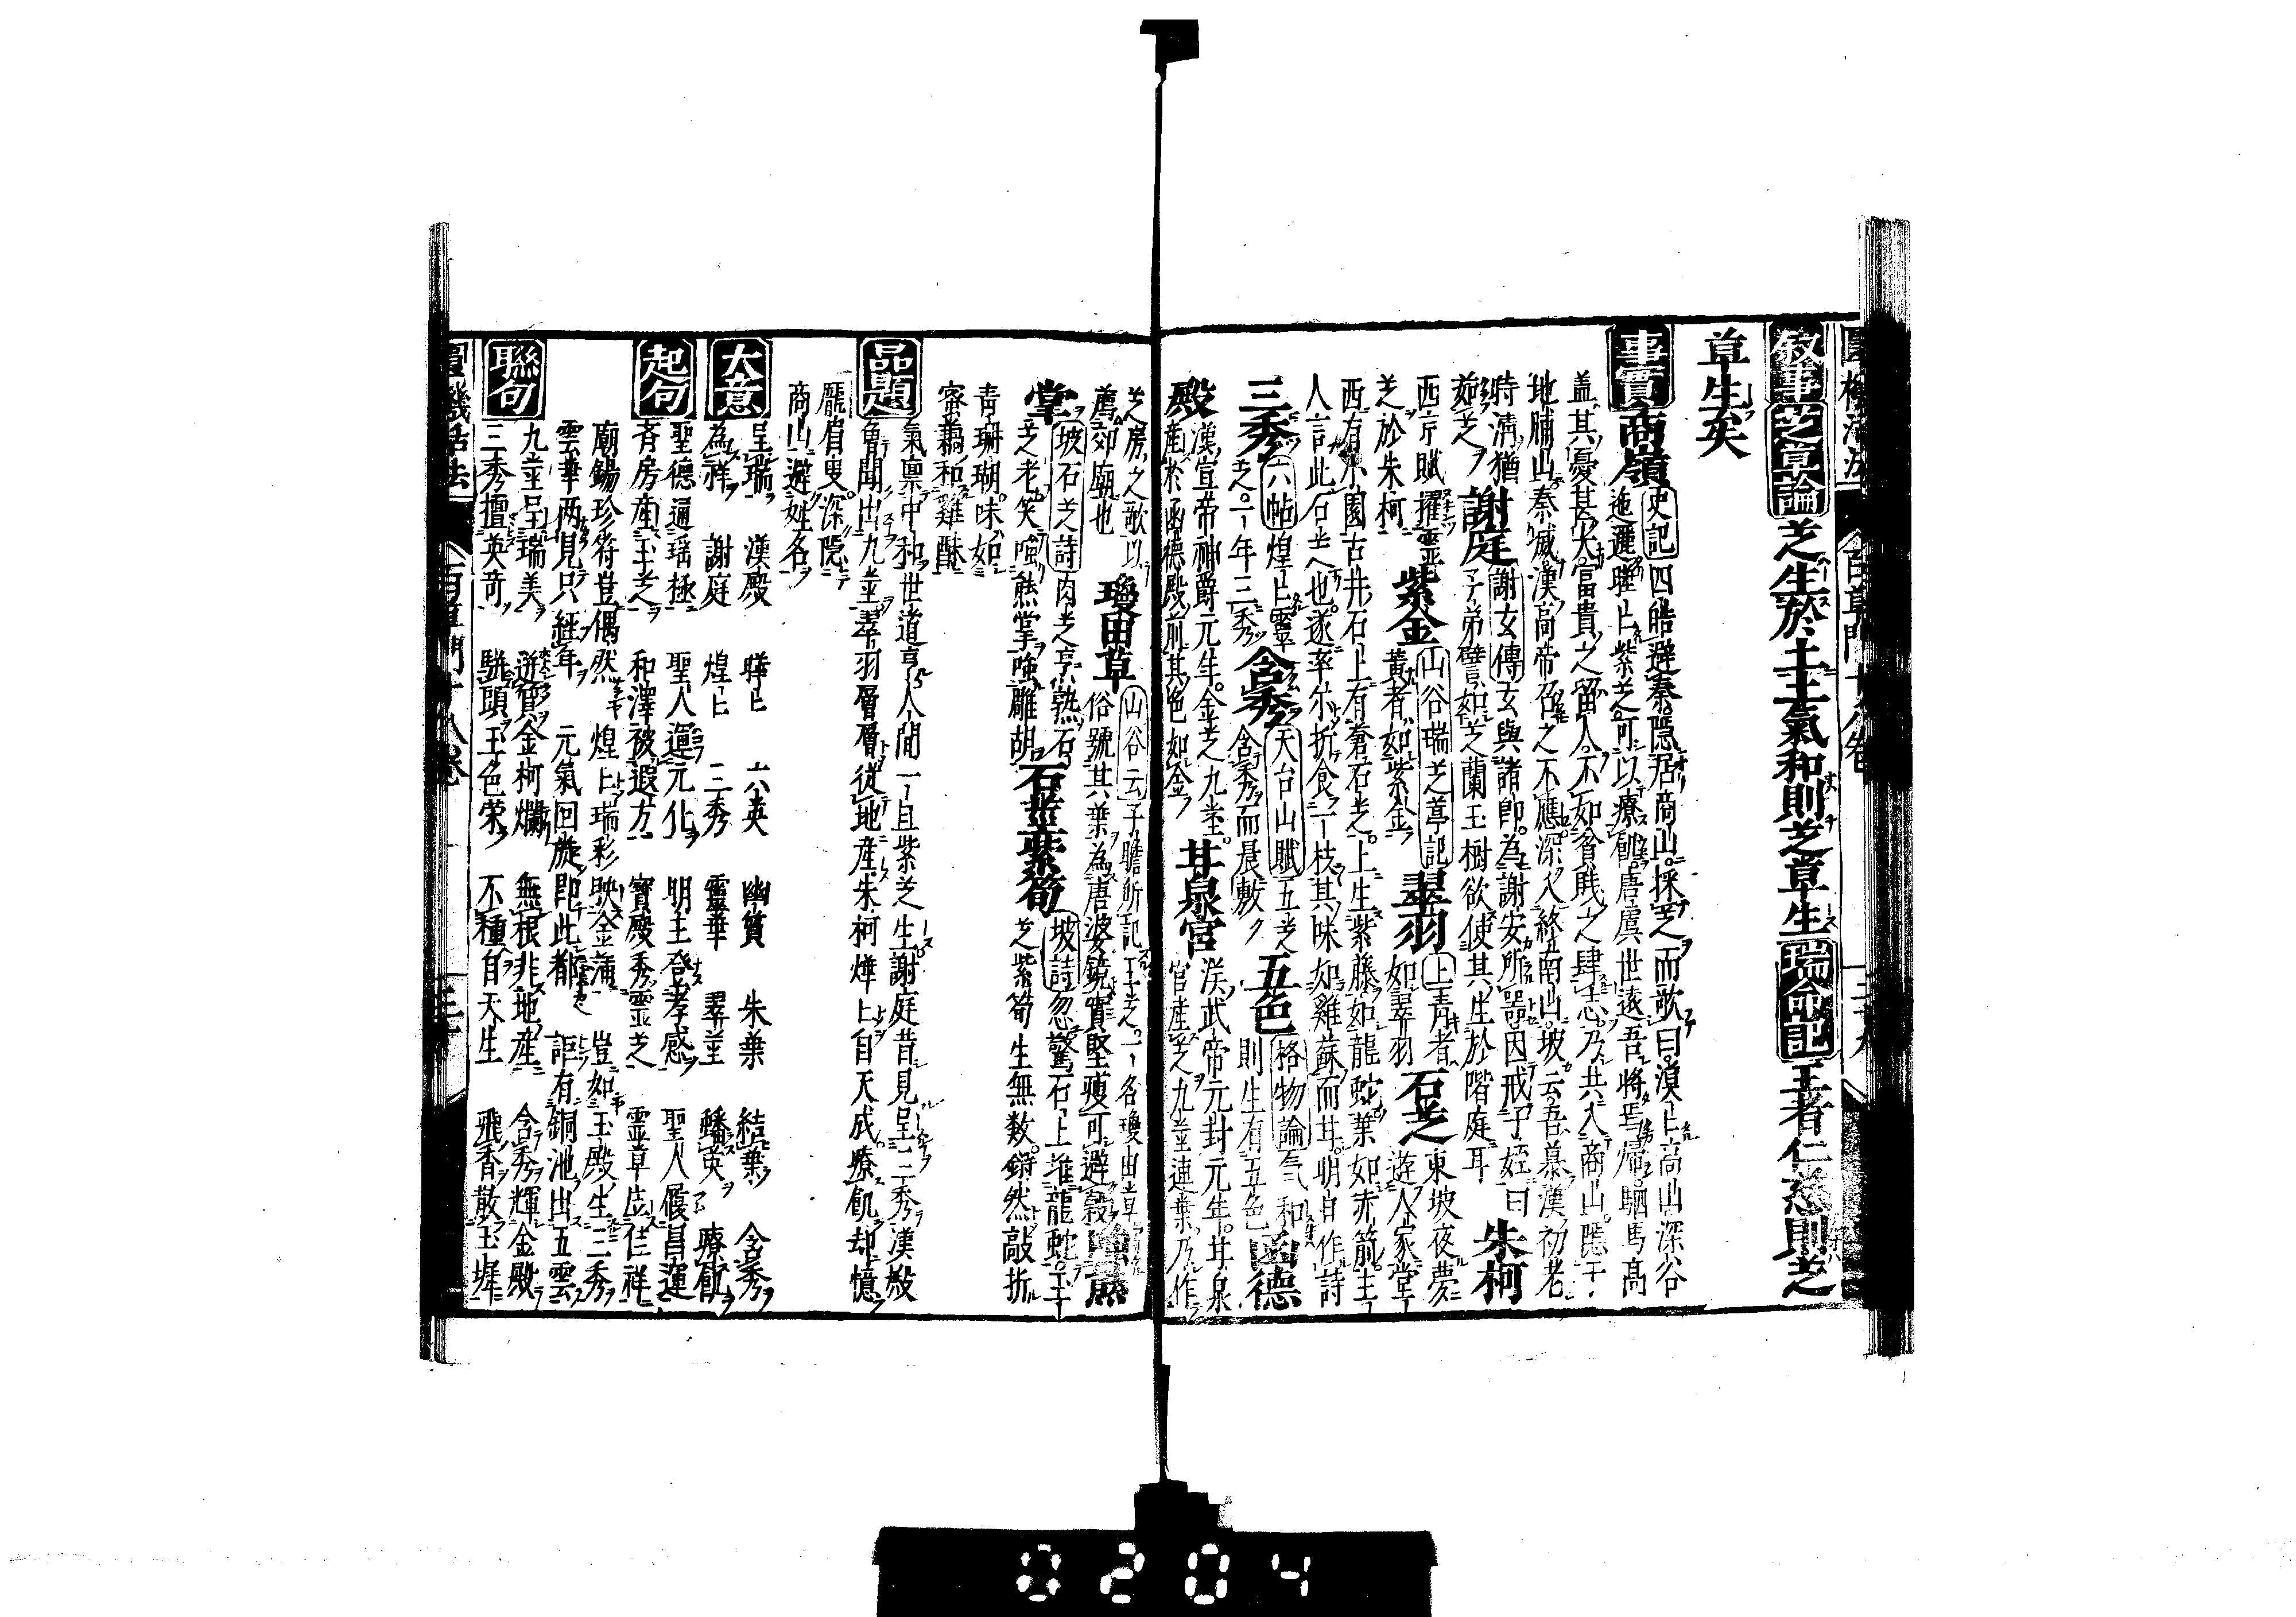 敘事 芝草論 芝生於土土氣和則芝草生 瑞命記 王者仁慈則芝
草生矣
事實 商嶺 史記 四皓避秦隱居商山採芝而歌曰漠〻高山深谷
逶迤曄〻紫芝可以療飢唐虞世遠吾將焉歸駟馬高
盖其憂甚大富貴之留人不如貧賤之肆志乃共入商山隱于
地肺山秦滅漢高帝召之不應深入終南山坡云吾慕漢初老
時清猶
茹芝 謝庭 謝玄傳 玄與諸郎為謝安所器因戒子姪曰
子弟譬如芝蘭玉樹欲使其生於階庭耳 朱柯
西京賦擢靈
芝於朱柯 紫金 山谷瑞芝亭記
黃者如紫金 翠羽 上青者
如翠羽 石芝 東坡夜夢
遊人家堂
西有小園古井石上有蒼石芝上生紫藤如龍蛇葉如赤箭主
人言此石芝也遂率尔折食一枝其味如雞蘇而甘明日作詩
三秀 六帖 煌〻靈
芝一年三秀 含秀 天台山賦 五芝
含秀而晨敷 五色 格物論 气和
則生有五色 函德
殿 漢宣帝神爵元年金芝九莖
產於函德殿前其色如金 甘泉宮 漢武帝元封元年甘泉
宮產芝九莖連葉乃作
芝房之歌以
薦郊廟也 瓊田草 山谷云子瞻所記玉芝一名瓊田草
俗號其葉為唐婆鏡實堅瘦可避穀
掌 坡石芝詩 肉芝烹熟石
芝老笑唫熊掌唫雕胡 石芝紫筍 坡詩 忽驚石上堆龍蛇玉
芝紫筍生無数鏘然敲折
青珊瑚味如
蜜藕和雞酥
品題 氣禀中和世道亨人間一旦紫芝生謝庭昔見呈三秀漢殿
曾聞出九莖翠羽層層從地產朱柯燁〻自天成療飢却憶
厖眉叟深隱
商山避姓名
大意 呈瑞 漢殿 曄〻 六英 幽質 朱葉 結葉 含秀
為祥 謝庭 煌〻 三秀 靈華 翠莖 蟠英 療飢
起句 聖德通瑶極 聖人運元化 明主登孝感 聖人履昌運
齊房產玉芝 和澤被遐方 寶殿秀靈芝 靈草应佳祥
廟鍚珍符豈偶然 煌〻瑞彩映金蒲 豈如玉殿生三秀
雲華两見只經年 元氣回旋即此都 詎有銅池出五雲
聯句 九莖呈瑞美 迸質金柯爛 無根非地産 含秀輝金殿
三秀擅英奇 駢頭玉色榮 不種自天生 飛香散玉墀
圓機活法 百草門十八卷